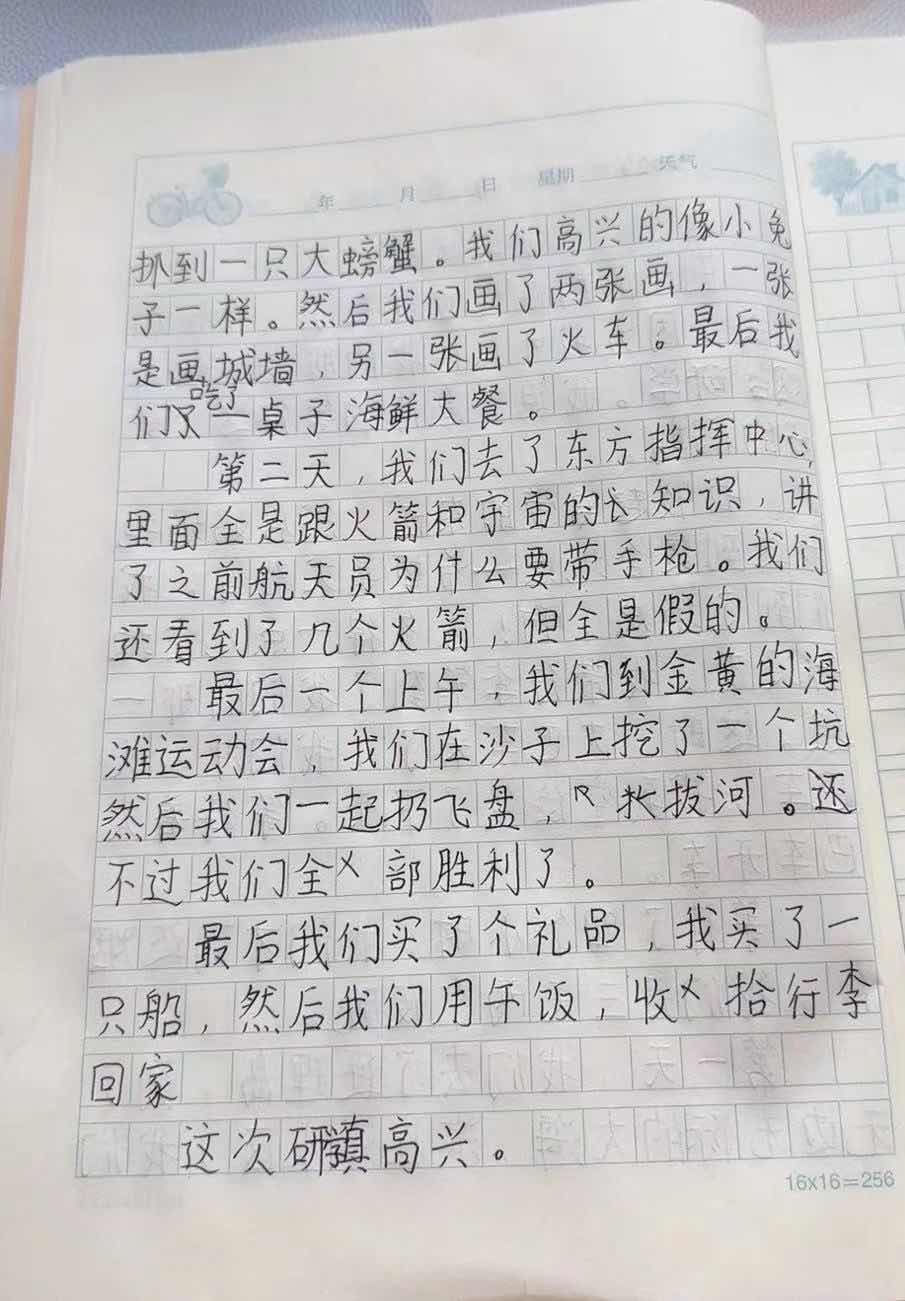 年 月 日 星期 天气
抓到一只大螃蟹。我们高兴的像小兔
子一样。然后我们画了两张画，一张
是画城墙，另一张画了火车。最后我
吃了
们又一桌子海鲜大餐。
第二天，我们去了东方指挥中心，
里面全是跟火箭和宇宙的知识，讲
了之前航天员为什么要带手枪。我们
还看到了几个火箭，但全是假的。
最后一个上午，我们到金黄的海
滩运动会，我们在沙子上挖了一个坑
然后我们一起扔飞盘，拔河。还
不过我们全部胜利了。
最后我们买了个礼品，我买了一
只船，然后我们用午饭，收拾行李
回家
这次研学真高兴。
16x16=256